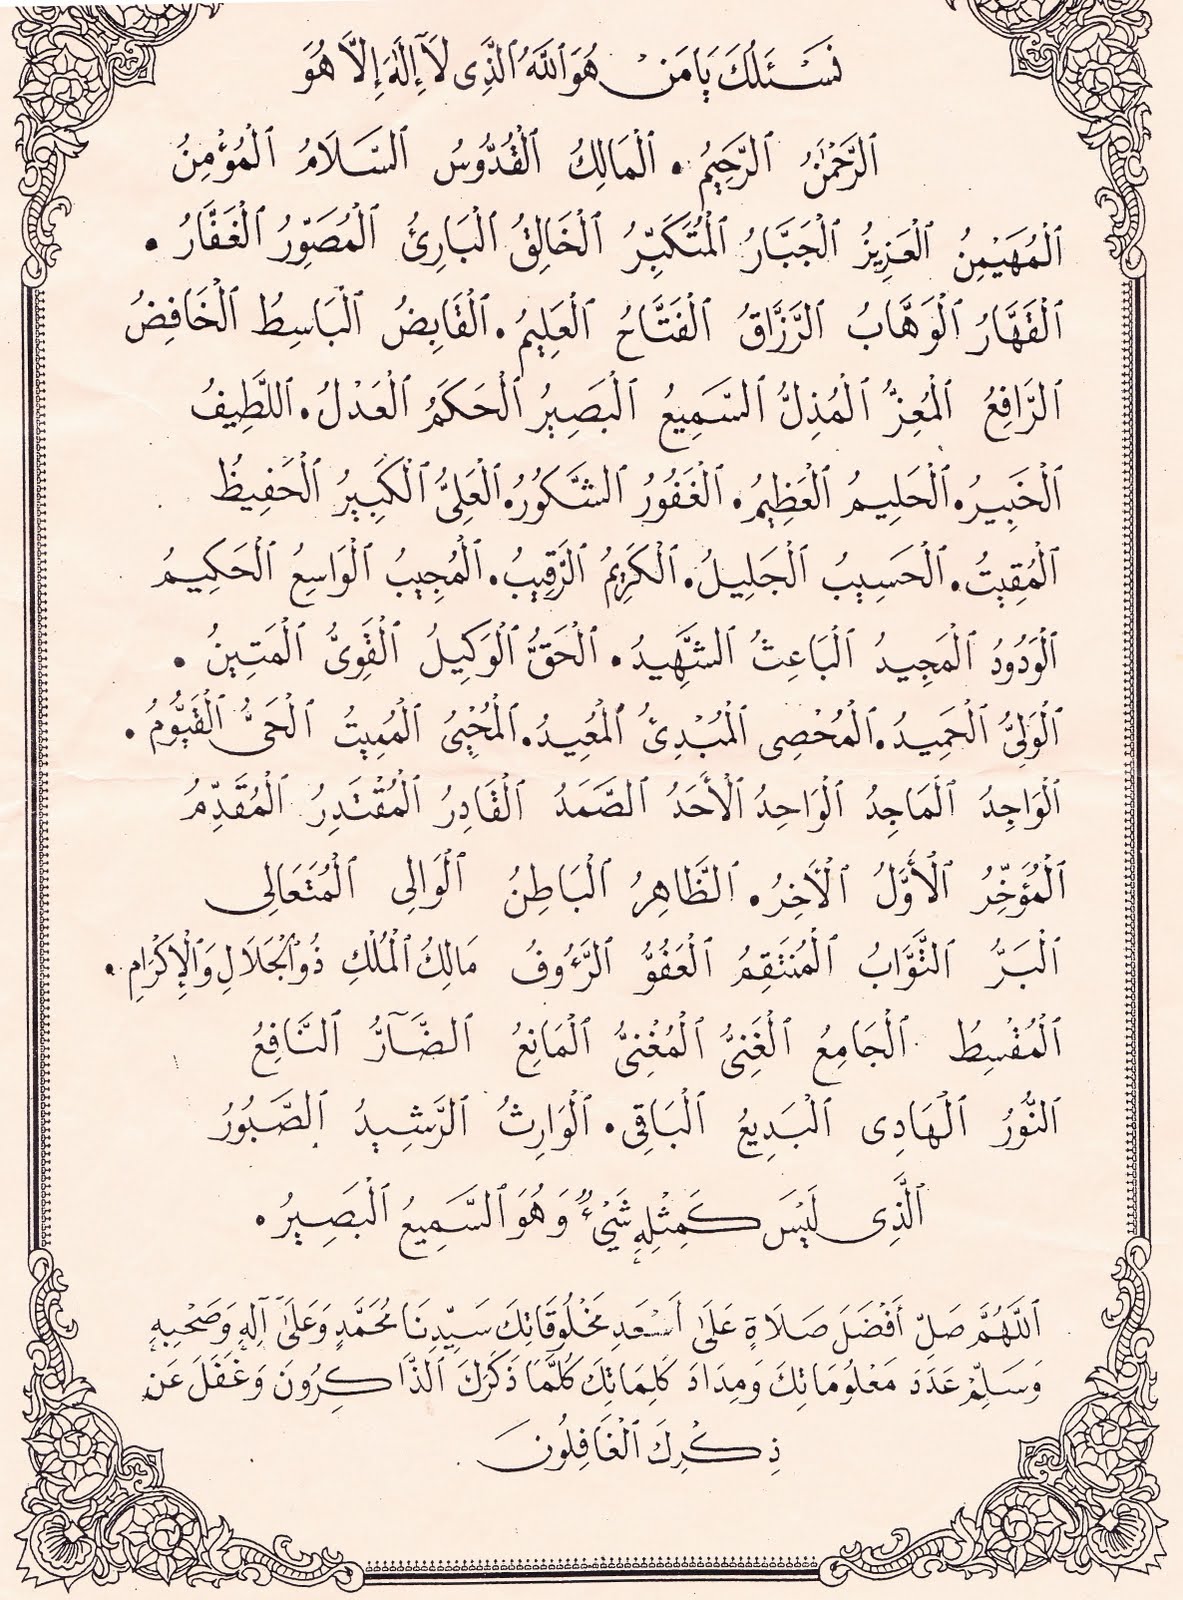 نَسْئَلُكَ يَا مَنْ هُوَ اللَّهُ الَّذِى لَآ إِلَٰهَ إِلَّا هُوَ
الرَّحْمَٰنُ الرَّحِيمُ . الْمَالِكُ الْقُدُّوسُ السَّلَامُ الْمُؤْمِنُ
الْمُهَيْمِنُ الْعَزِيزُ الْجَبَّارُ الْمُتَكَبِّرُ الْخَالِقُ الْبَارِئُ الْمُصَوِّرُ الْغَفَّارُ .
الْقَهَّارُ الْوَهَّابُ الرَّزَّاقُ الْفَتَّاحُ الْعَلِيمُ . الْقَابِضُ الْبَاسِطُ الْخَافِضُ
الرَّافِعُ الْمُعِزُّ الْمُذِلُّ السَّمِيعُ الْبَصِيرُ الْحَكَمُ الْعَدْلُ . اللَّطِيفُ
الْخَبِيرُ . الْحَلِيمُ الْعَظِيمُ . الْغَفُورُ الشَّكُورُ . الْعَلِىُّ الْكَبِيرُ الْحَفِيظُ
الْمُقِيتُ . الْحَسِيبُ الْجَلِيلُ . الْكَرِيمُ الرَّقِيبُ . الْمُجِيبُ الْوَاسِعُ الْحَكِيمُ
الْوَدُودُ الْمَجِيدُ الْبَاعِثُ الشَّهِيدُ . الْحَقُّ الْوَكِيلُ الْقَوِىُّ الْمَتِينُ .
الْوَلِىُّ الْحَمِيدُ . الْمُحْصِى الْمُبْدِئُ الْمُعِيدُ . الْمُحْيِى الْمُمِيتُ الْحَىُّ الْقَيُّومُ .
الْوَاجِدُ الْمَاجِدُ الْوَاحِدُ الْأَحَدُ الصَّمَدُ الْقَادِرُ الْمُقْتَدِرُ الْمُقَدِّمُ
الْمُؤَخِّرُ الْأَوَّلُ الْآخِرُ . الظَّاهِرُ الْبَاطِنُ الْوَالِى الْمُتَعَالِى
الْبَرُّ التَّوَّابُ الْمُنْتَقِمُ الْعَفُوُّ الرَّءُوفُ مَالِكُ الْمُلْكِ ذُو الْجَلَالِ وَالْإِكْرَامِ .
الْمُقْسِطُ الْجَامِعُ الْغَنِىُّ الْمُغْنِىُّ الْمَانِعُ الضَّآرُّ النَّافِعُ
النُّورُ الْهَادِى الْبَدِيعُ الْبَاقِى . الْوَارِثُ الرَّشِيدُ الصَّبُورُ
الَّذِى لَيْسَ كَمِثْلِهِ شَىْءٌ وَهُوَ السَّمِيعُ الْبَصِيرُ .
اللَّهُمَّ صَلِّ أَفْضَلَ صَلَاةٍ عَلَى أَسْعَدِ مَخْلُوقَاتِكَ سَيِّدِنَا مُحَمَّدٍ وَعَلَى آلِهِ وَصَحْبِهِ
وَسَلِّمْ عَدَدَ مَعْلُومَاتِكَ وَمِدَادَ كَلِمَاتِكَ كُلَّمَا ذَكَرَكَ الذَّاكِرُونَ وَغَفَلَ عَنْ
ذِكْرِكَ الْغَافِلُونَ